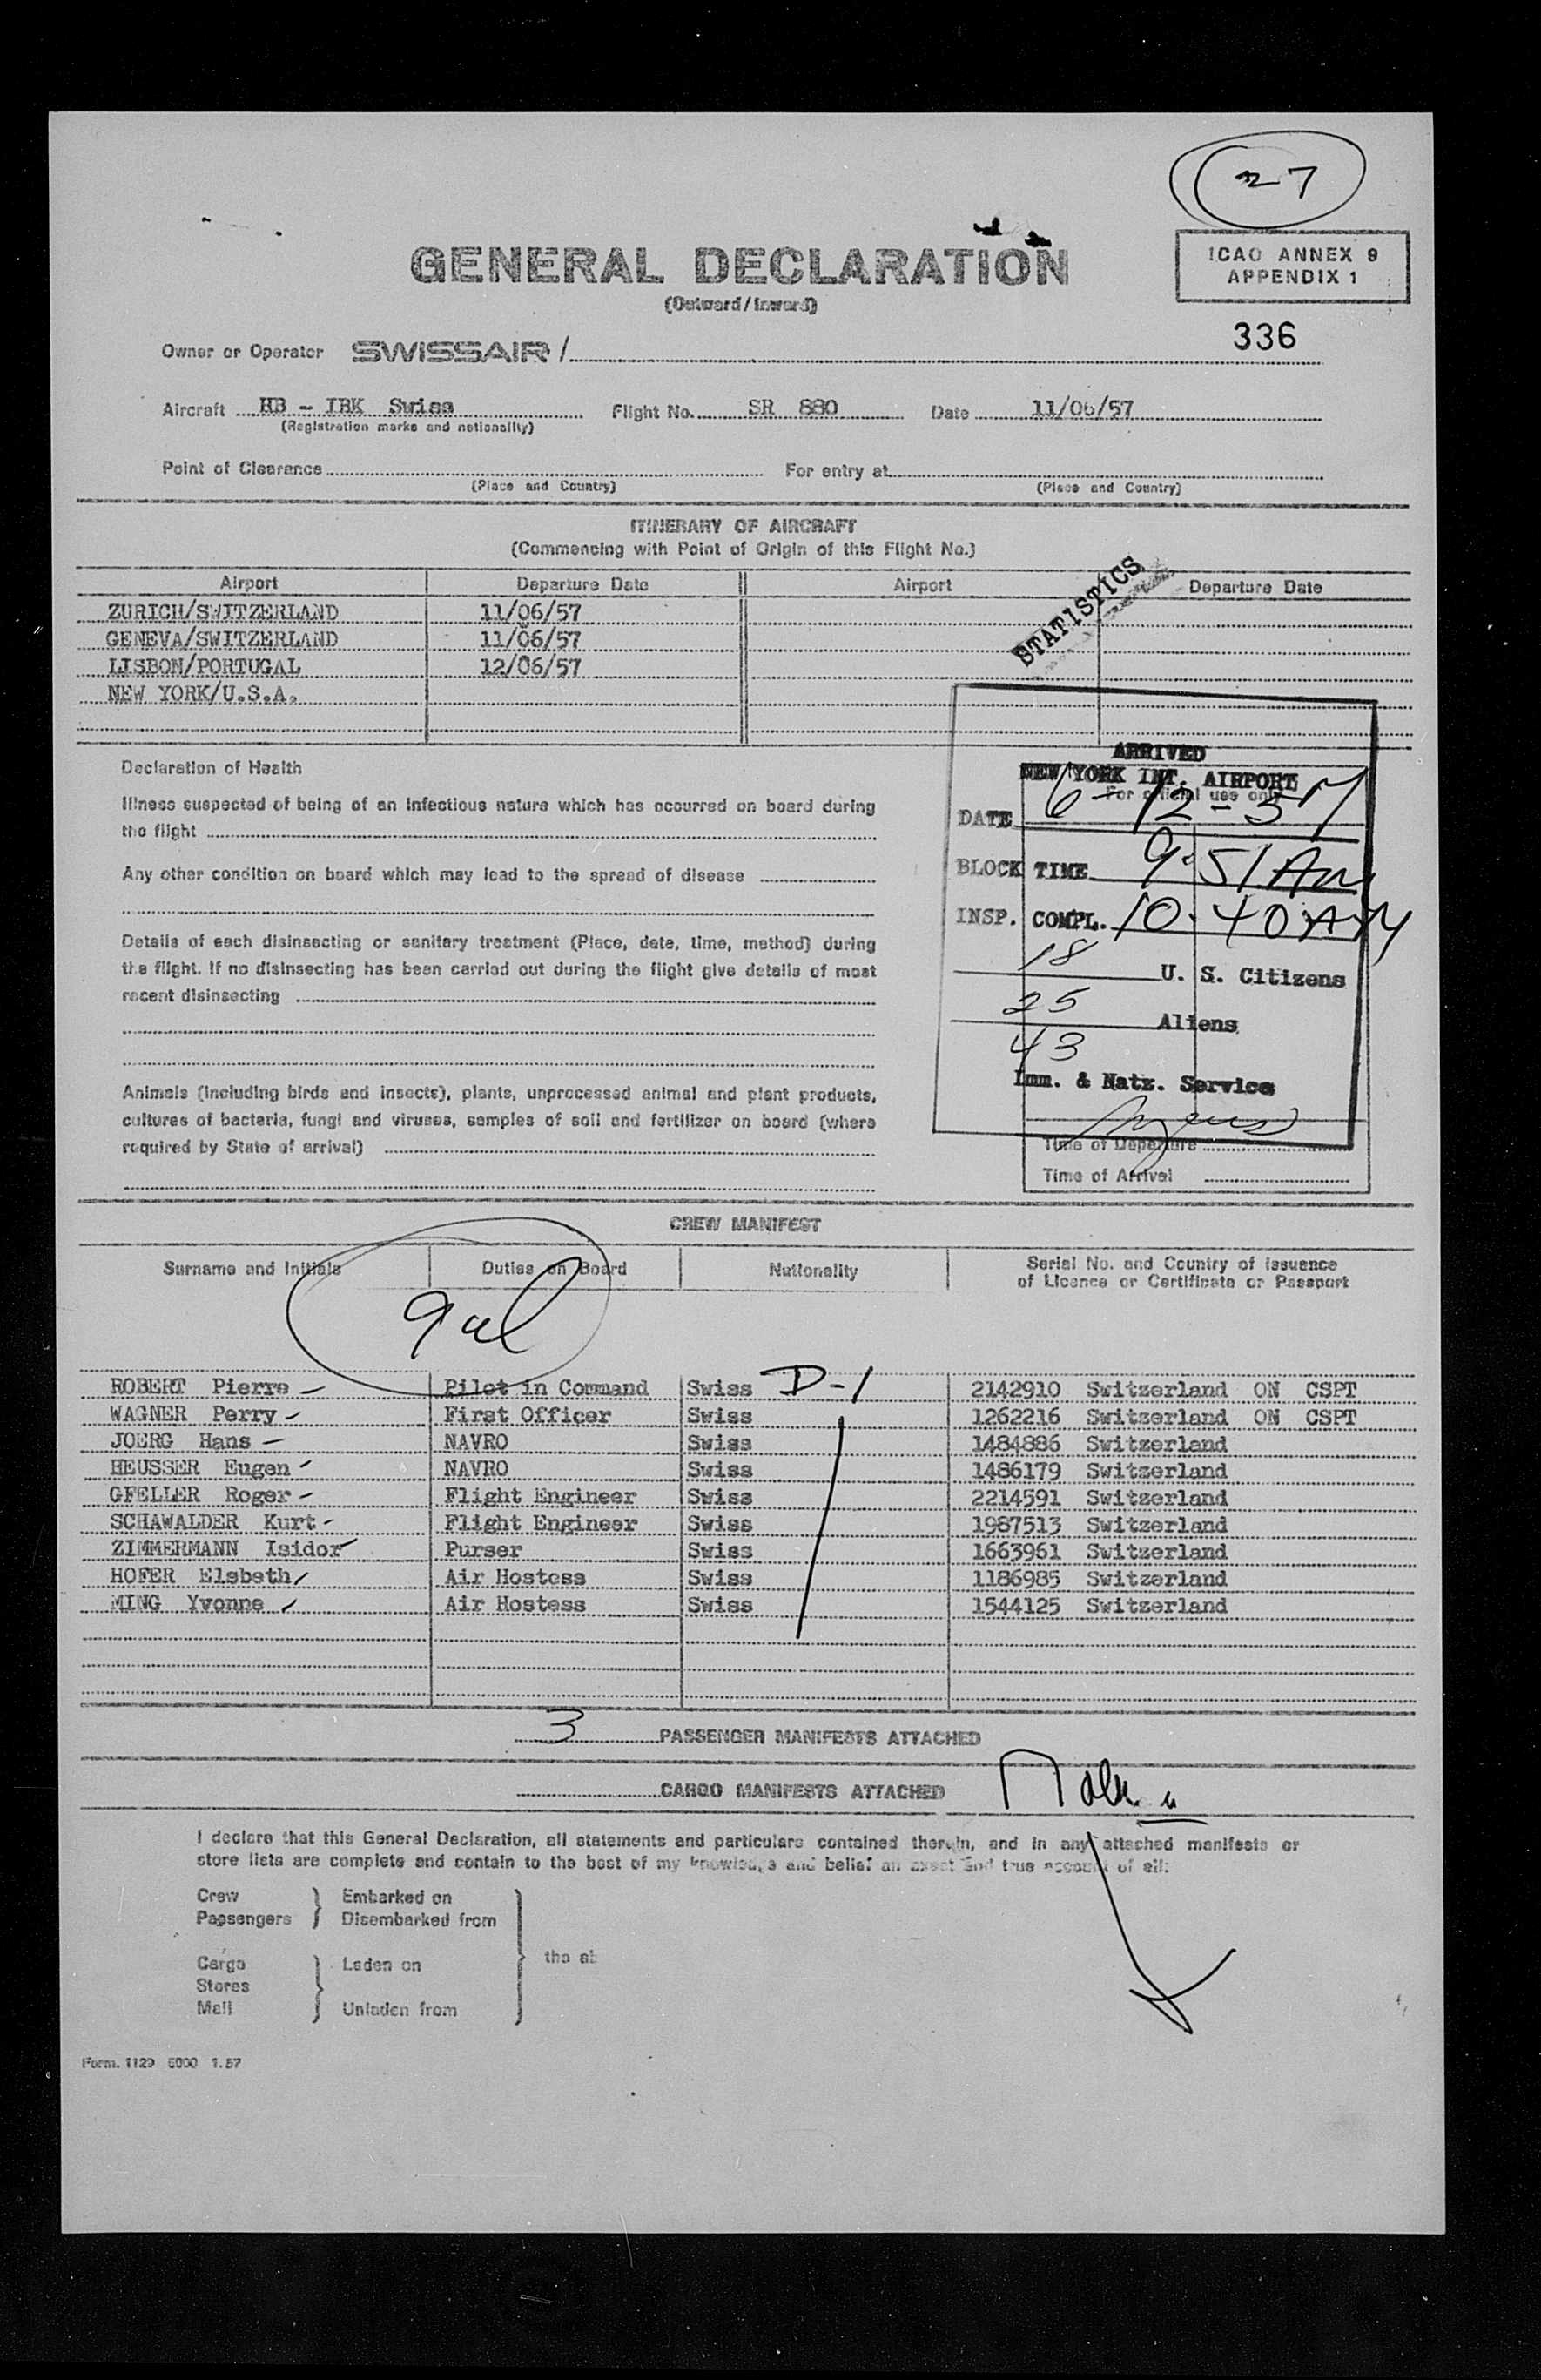 27
GENERAL DECLARATION
(Outward/Inward)
ICAO ANNEX 9
APPENDIX 1
336
Owner or Operator SWISSAIR /
Aircraft HB - IBK Swiss Flight No. SR 880 Date 11/06/57
(Registration marks and nationality)
Point of Clearance For entry at
(Place and Country) (Place and Country)
ITINERARY OF AIRCRAFT
(Commencing with Point of Origin of this Flight No.)
Airport Departure Date Airport Departure Date
STATISTICS
ZURICH/SWITZERLAND 11/06/57
GENEVA/SWITZERLAND 11/06/57
LISBON/PORTUGAL 12/06/57
NEW YORK/U.S.A.
ARRIVED
NEW YORK INT. AIRPORT
For official use only
DATE 6-12-57
BLOCK TIME 9:51 AM
INSP. COMPL. 10:40 AM
18 U. S. Citizens
25 Aliens
43
Imm. & Natz. Service
Time of Departure
Time of Arrival
Declaration of Health
Illness suspected of being of an infectious nature which has occurred on board during
the flight
Any other condition on board which may lead to the spread of disease
Details of each disinsecting or sanitary treatment (Place, date, time, method) during
the flight. If no disinsecting has been carried out during the flight give details of most
recent disinsecting
Animals (including birds and insects), plants, unprocessed animal and plant products,
cultures of bacteria, fungi and viruses, samples of soil and fertilizer on board (where
required by State of arrival)
CREW MANIFEST
Surname and Initials Duties on Board Nationality Serial No. and Country of Issuance
of Licence or Certificate or Passport
9 al
ROBERT Pierre Pilot in Command Swiss D-1 2142910 Switzerland ON CSPT
WAGNER Perry First Officer Swiss 1262216 Switzerland ON CSPT
JOERG Hans NAVRO Swiss 1484886 Switzerland
HEUSSER Eugen NAVRO Swiss 1486179 Switzerland
GFELLER Roger Flight Engineer Swiss 2214591 Switzerland
SCHAWALDER Kurt Flight Engineer Swiss 1987513 Switzerland
ZIMMERMANN Isidor Purser Swiss 1663961 Switzerland
HOFER Elsbeth Air Hostess Swiss 1186985 Switzerland
MING Yvonne Air Hostess Swiss 1544125 Switzerland
3 PASSENGER MANIFESTS ATTACHED
CARGO MANIFESTS ATTACHED
I declare that this General Declaration, all statements and particulars contained therein, and in any attached manifests or
store lists are complete and contain to the best of my knowledge and belief an exact and true account of all:
Crew Embarked on
Passengers Disembarked from
the ab
Cargo Laden on
Stores
Mail Unladen from
Form. 1129 5000 1.57